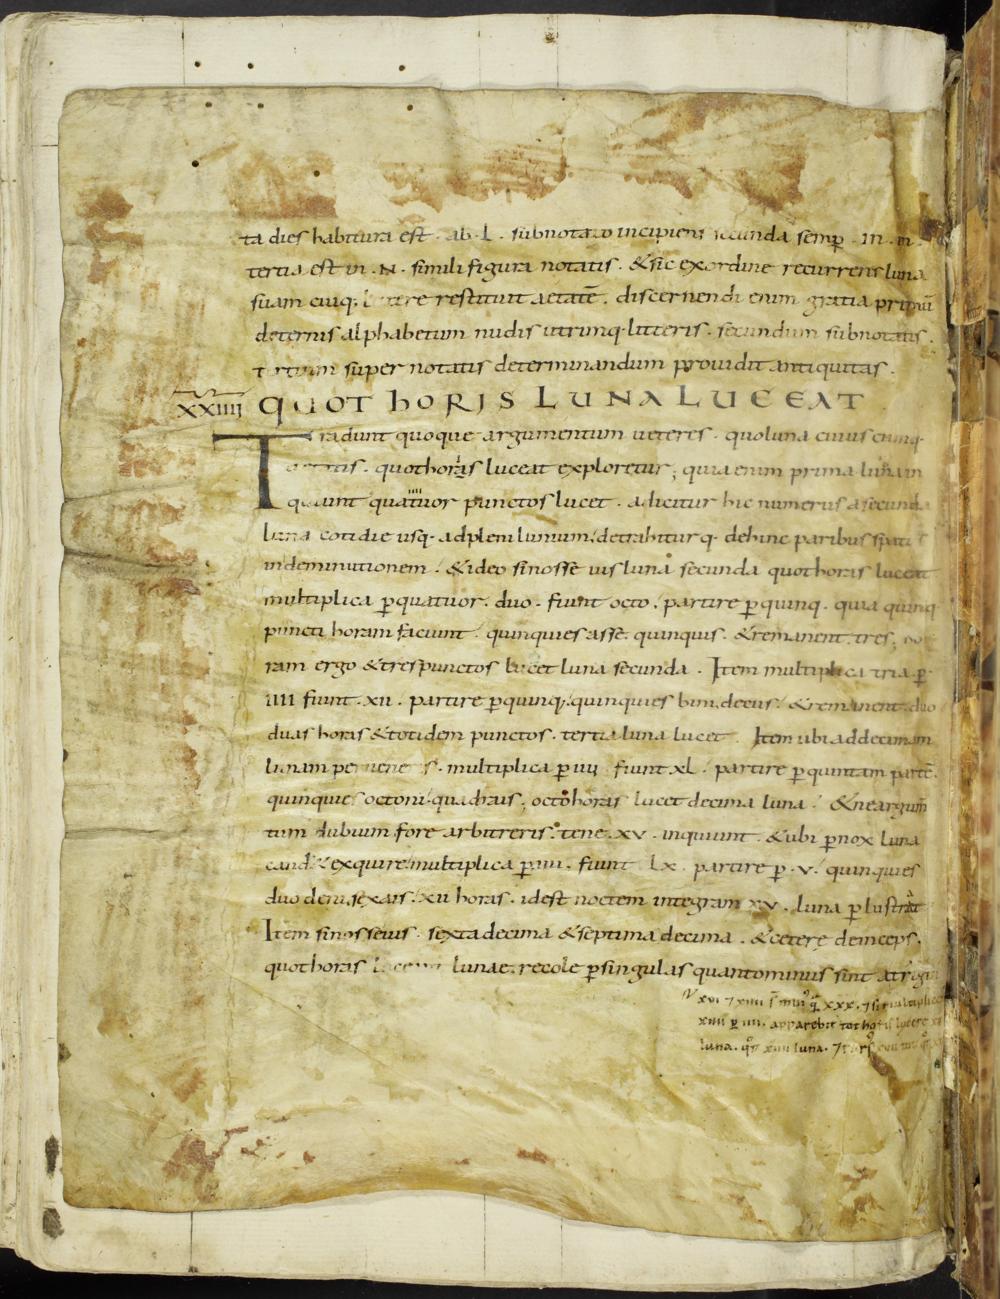 ta dies habitura est · ab · L · subnotato incipiens secunda semp · In · m ·
tertia est in · N · simili figura notatis · & sic ex ordine recurrens luna
suam cuiq; restituit aetatē · discernendi enim gratia primū
deternis alphabetum nudis utrimq · litteris · secundum subnotatis ·
tertium super notatis determinandum prouidit antiquitas ·
XXIIII QUOT hORIS LUNA LUCEAT
Tradunt quoque argumentum ueteres · quo luna cuius cumq ·
aetatis · quot horis luceat exploretur ; quia enim prima lunam
quattuor punctos lucet · adicitur hic numerus a secunda
luna cotidie usq · ad plenilunium detrahitur q · dehinc paribus spatiis
in deminutionem · & ideo si nosse uis luna secunda quot horis luceat
multiplica p quatuor · duo · fiunt octo · partire p quinq · quia quinq
puncti horam faciunt · quinquies asse quinquis · & remanent tres ;
ram ergo & tres punctos lucet luna secunda · Item multiplica tria p
IIII fiunt · XII · partire p quinq; quinquies bini decus · & remanent duo
duas horas & totidem punctos · tertia luna lucet · Item ubi ad decimam
lunam multiplica p IIII fiunt XL · partire p quintam partē ·
quinquies octoni quadraus ; octo horas lucet decima luna · & ne argum̄
tum dubium fore arbitreris · tene · XV · inquiunt · & ubi p nox luna
exquire multiplica p IIII · fiunt LX · partire p · V · quinquies
duo deni sexais · XII horas · id est noctem integram XV · luna plustrat
Item si nosse uis · sexta decima & septima decima · & cetere deinceps ·
quot horas lunae · recole p singulas quanto minus sint a trigin
XVI 7 XIIII XXX · 7 si multiplic
XIIII p IIII · apparebit tot horis lucere
luna · XIIII luna ·